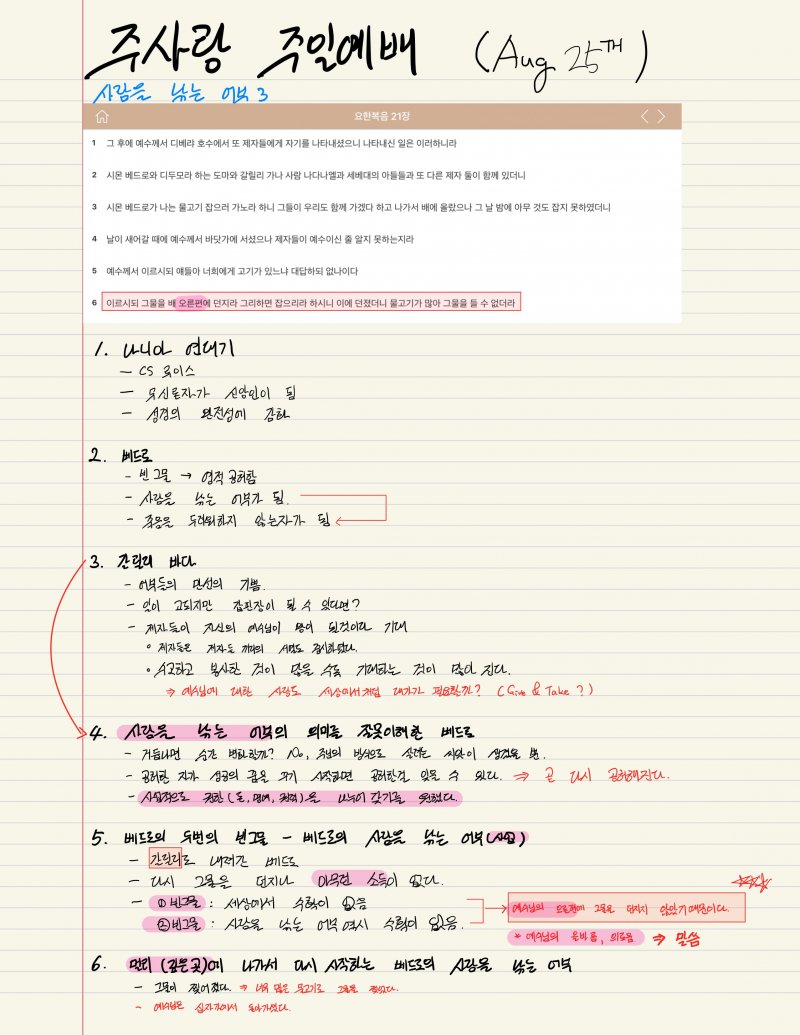 주사랑 주일예배 (Aug 25th)
사람을 낚는 어부 3
요한복음 21장
1 그 후에 예수께서 디베랴 호수에서 또 제자들에게 자기를 나타내셨으니 나타내신 일은 이러하니라
2 시몬 베드로와 디두모라 하는 도마와 갈릴리 가나 사람 나다나엘과 세베대의 아들들과 또 다른 제자 둘이 함께 있더니
3 시몬 베드로가 나는 물고기 잡으러 가노라 하니 그들이 우리도 함께 가겠다 하고 나가서 배에 올랐으나 그 날 밤에 아무 것도 잡지 못하였더니
4 날이 새어갈 때에 예수께서 바닷가에 서셨으나 제자들이 예수이신 줄 알지 못하는지라
5 예수께서 이르시되 얘들아 너희에게 고기가 있느냐 대답하되 없나이다
6 이르시되 그물을 배 오른편에 던지라 그리하면 잡으리라 하시니 이에 던졌더니 물고기가 많아 그물을 들 수 없더라
1. 나니아 연대기
- CS 루이스
- 무신론자가 신앙인이 됨
- 성경의 완전성에 감화
2. 베드로
- 빈 그물 → 영적 공허함
- 사람을 낚는 어부가 됨.
- 죽음을 두려워하지 않는자가 됨
3. 갈릴리 바다
- 어부들의 만선의 기쁨.
- 일이 고되지만 갑판장이 될 수 있다면?
- 제자들이 자신의 예수님이 왕이 될것이라 기대
• 제자들은 제자들 끼리의 서열도 중시하였다.
• 수고하고 봉사한 것이 많을 수록 기대하는 것이 많아 진다.
⇒ 예수님에 대한 사랑도 세상에서처럼 대가가 필요할까? (Give & Take ?)
4. 사람을 낚는 어부의 의미를 잘못이해한 베드로
- 거듭나면 순간 변화할까? No, 주님의 방식으로 살려는 씨앗이 생겼을 뿐.
- 공허한 자가 성공의 꿈을 꾸기 시작하면 공허한걸 잊을 수 있다. ⇒ 곧 다시 공허해진다.
- 사업적으로 권한 (돈, 명예, 권력)을 나누어 갖기를 원했다.
5. 베드로의 두번의 빈그물 - 베드로의 사람을 낚는 어부(사업)
- 갈릴리로 내려간 베드로
- 다시 그물을 던지나 아무런 소득이 없다.
- ① 빈그물 : 세상에서 수확이 없음
② 빈그물 : 사람을 낚는 어부 역시 수확이 없음.
예수님의 오른편에 그물을 던지지 않았기 때문이다.
* 예수님의 올바름, 의로움 ⇒ 말씀
6. 멀리 (깊은 곳)에 나가서 다시 시작하는 베드로의 사람을 낚는 어부
- 그물이 찢어졌다. ⇒ 너무 많은 물고기로 그물을 찢었다.
- 예수님은 십자가에서 돌아가셨다.